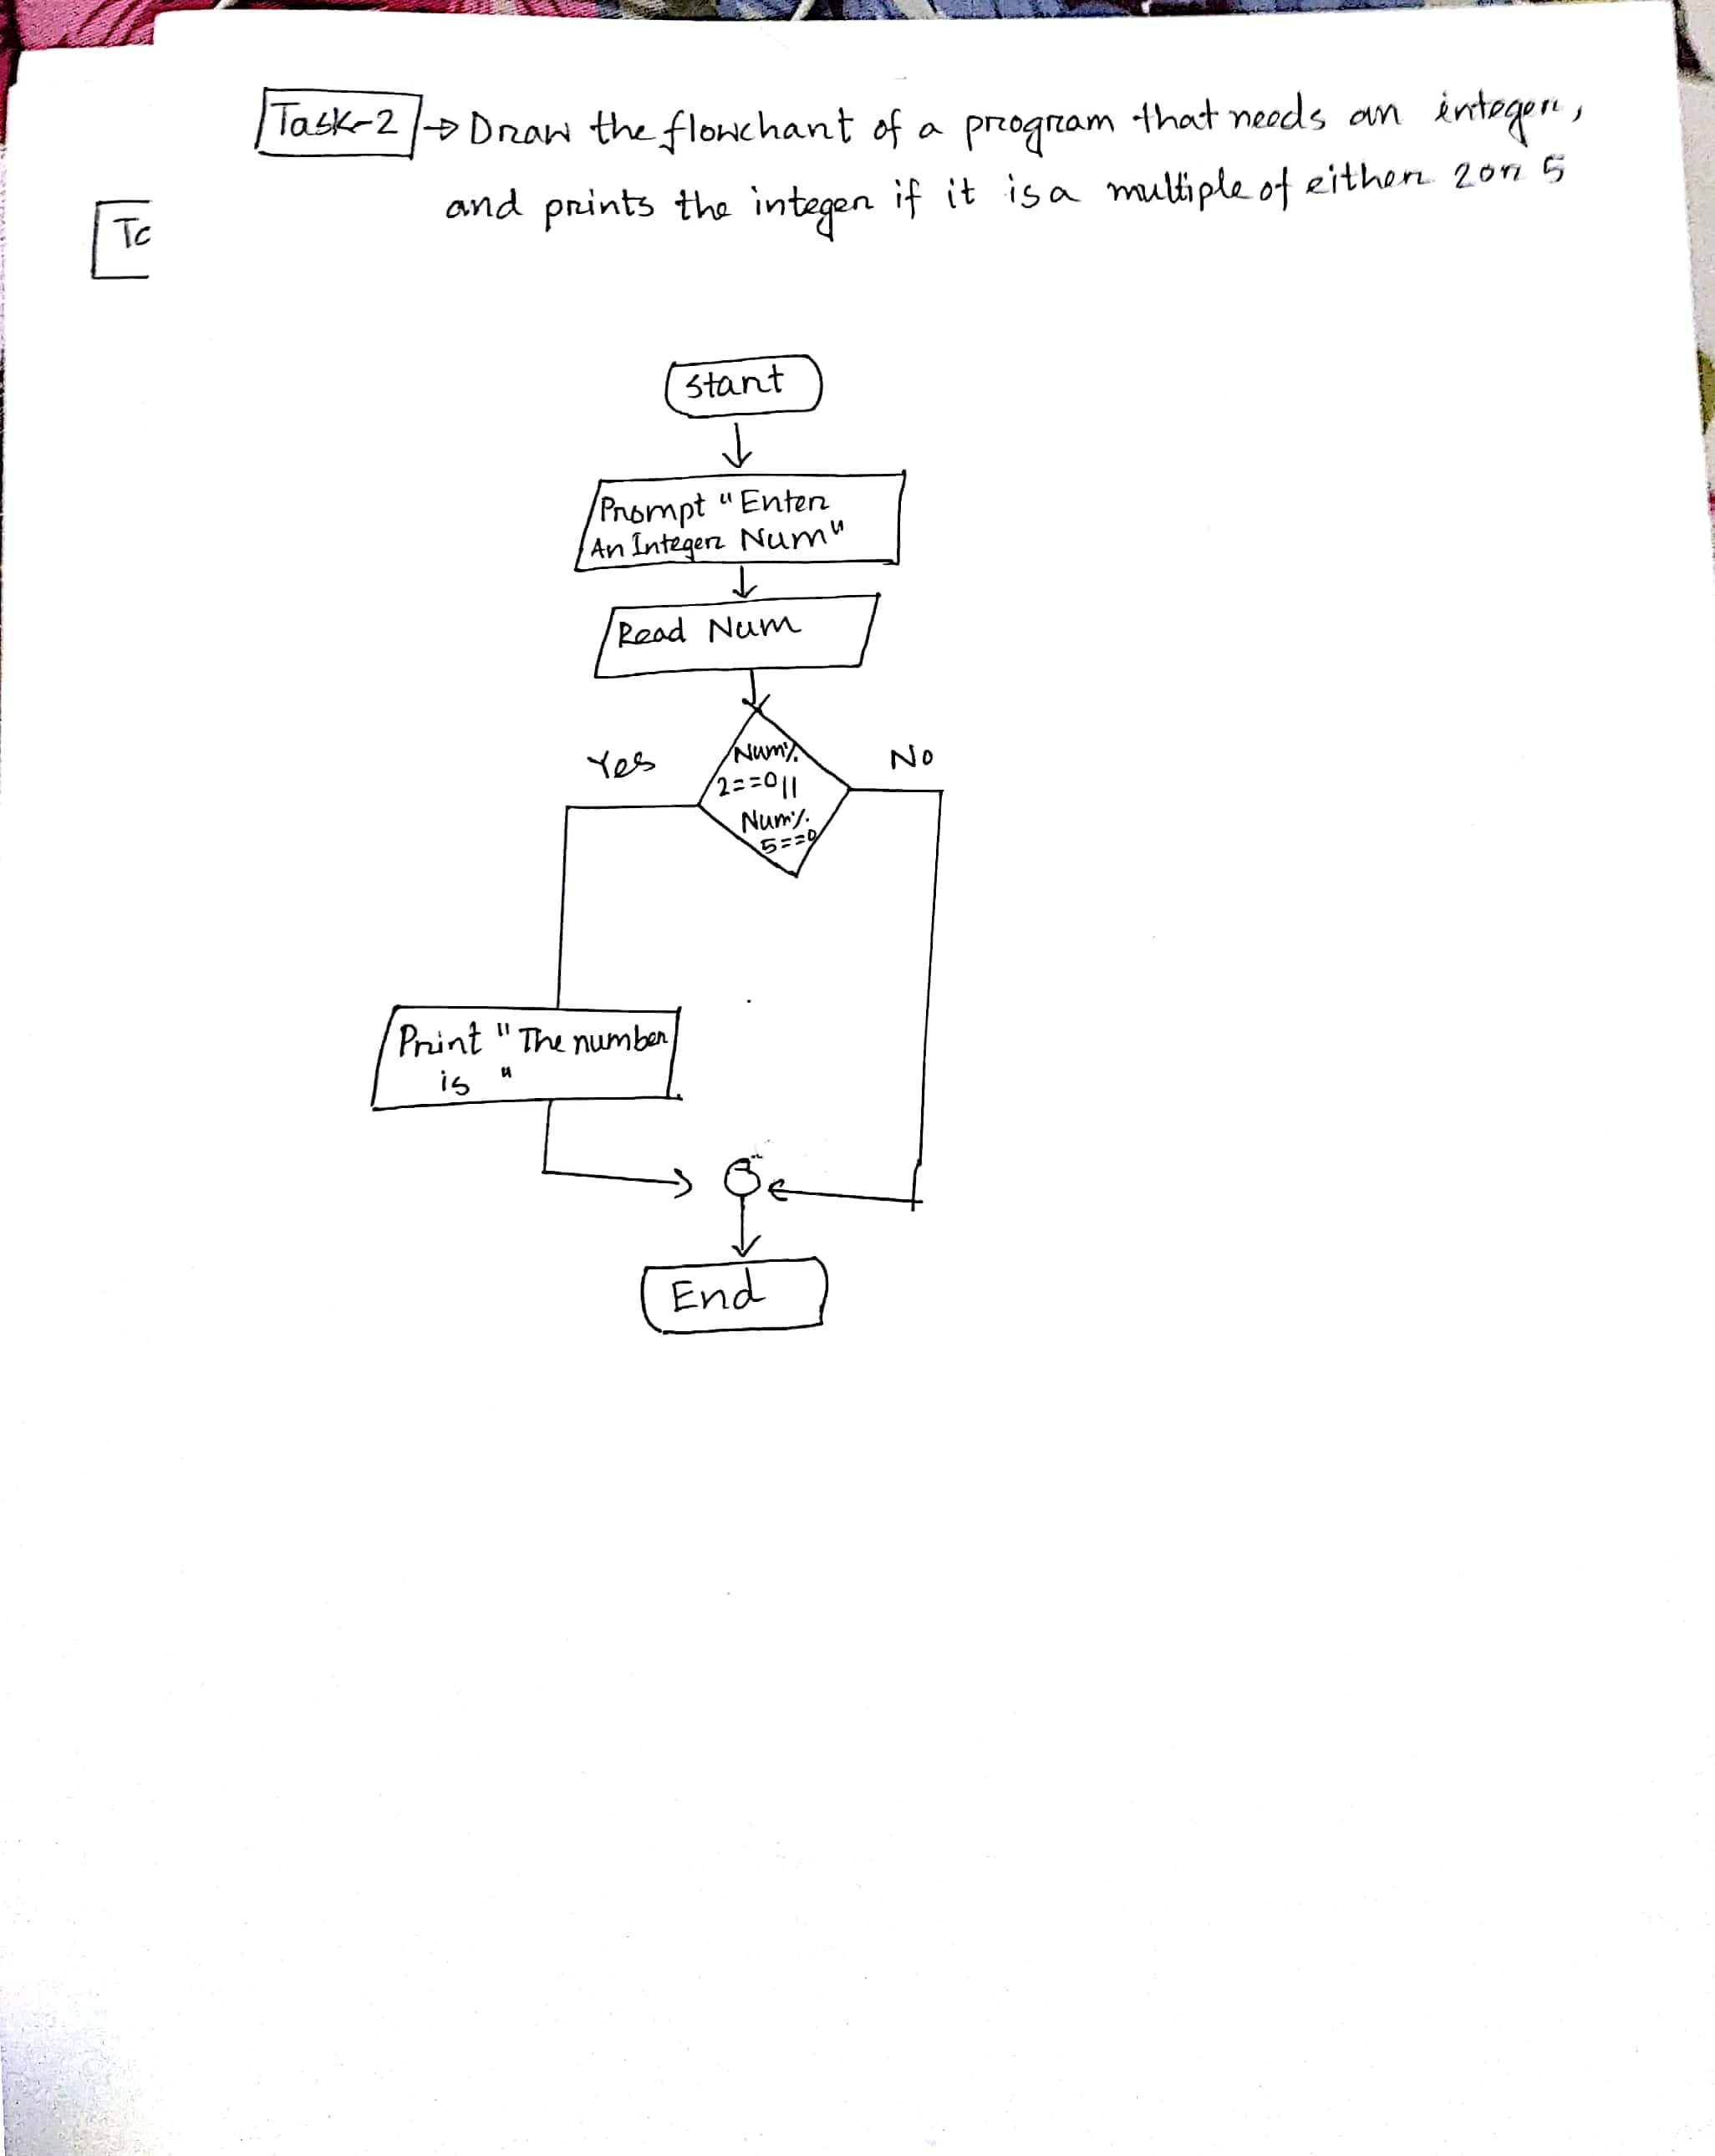 Task-2 → Draw the flowchart of a program that needs an integer,
and prints the integer if it is a multiple of either 2 or 5
Tc
Start
Prompt "Enter
An Integer Num"
Read Num
Yes
Num%
2==0||
Num%
5==0
No
Print "The number
is "
End